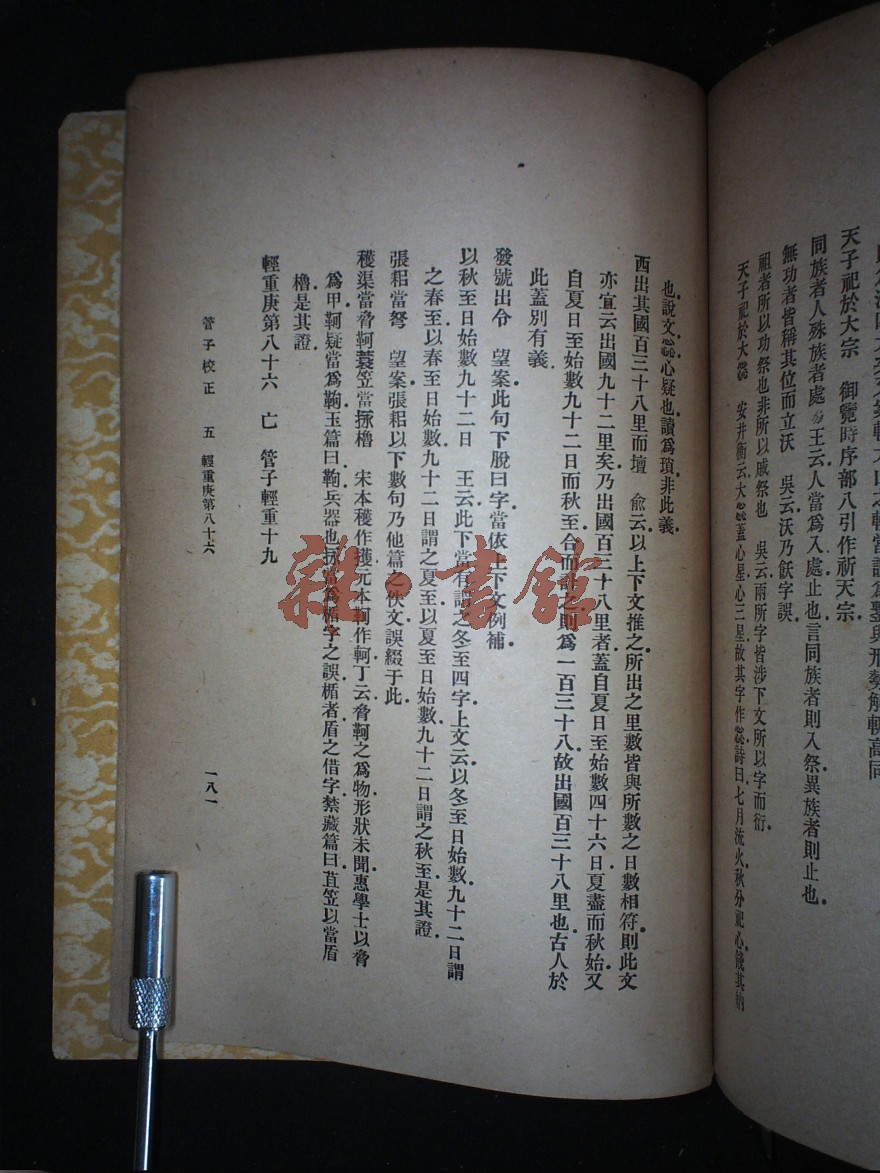 天子祀於大宗　御覽時序部八引作祈天宗
同族者人殊族者處　王云人當爲入處止也言同族者則入祭異族者則止也
無功者皆稱其位而立沃　吳云沃乃飫字誤
祖者所以功祭也非所以戚祭也　吳云兩所字皆涉下文所以字而衍
天子祀於大惢　安井衡云大惢蓋心星心三星故其字作惢詩曰七月流火秋分祀心餞其納
也說文惢心疑也讀爲瑣非此義
西出其國百三十八里而壇　俞云以上下文推之所出之里數皆與所數之日數相符則此文
亦宜云出國九十二里矣乃出國百三十八里者蓋自夏日至始數四十六日夏盡而秋始又
自夏日至始數九十二日而秋至合而則爲一百三十八故出國百三十八里也古人於
此蓋別有義
發號出令　望案此句下脫曰字當依上下文例補
以秋至日始數九十二日　王云此下當有謂之冬至四字上文云以冬至日始數九十二日謂
之春至以春至日始數九十二日謂之夏至以夏至日始數九十二日謂之秋至是其證
張耜當弩　望案張耜以下數句乃他篇之佚文誤綴于此
穫渠當脅軻蓑笠當㧻櫓　宋本穫作獲元本軻作䩭丁云脅軻之爲物形狀未聞惠學士以脅
爲甲軻疑當爲鞫玉篇曰鞫兵器也㧻當爲楯字之誤楯者盾之借字禁藏篇曰苴笠以當盾
櫓是其證
輕重庚第八十六　亡　管子輕重十九
管子校正　五　輕重庚第八十六
一八一
雜·書館